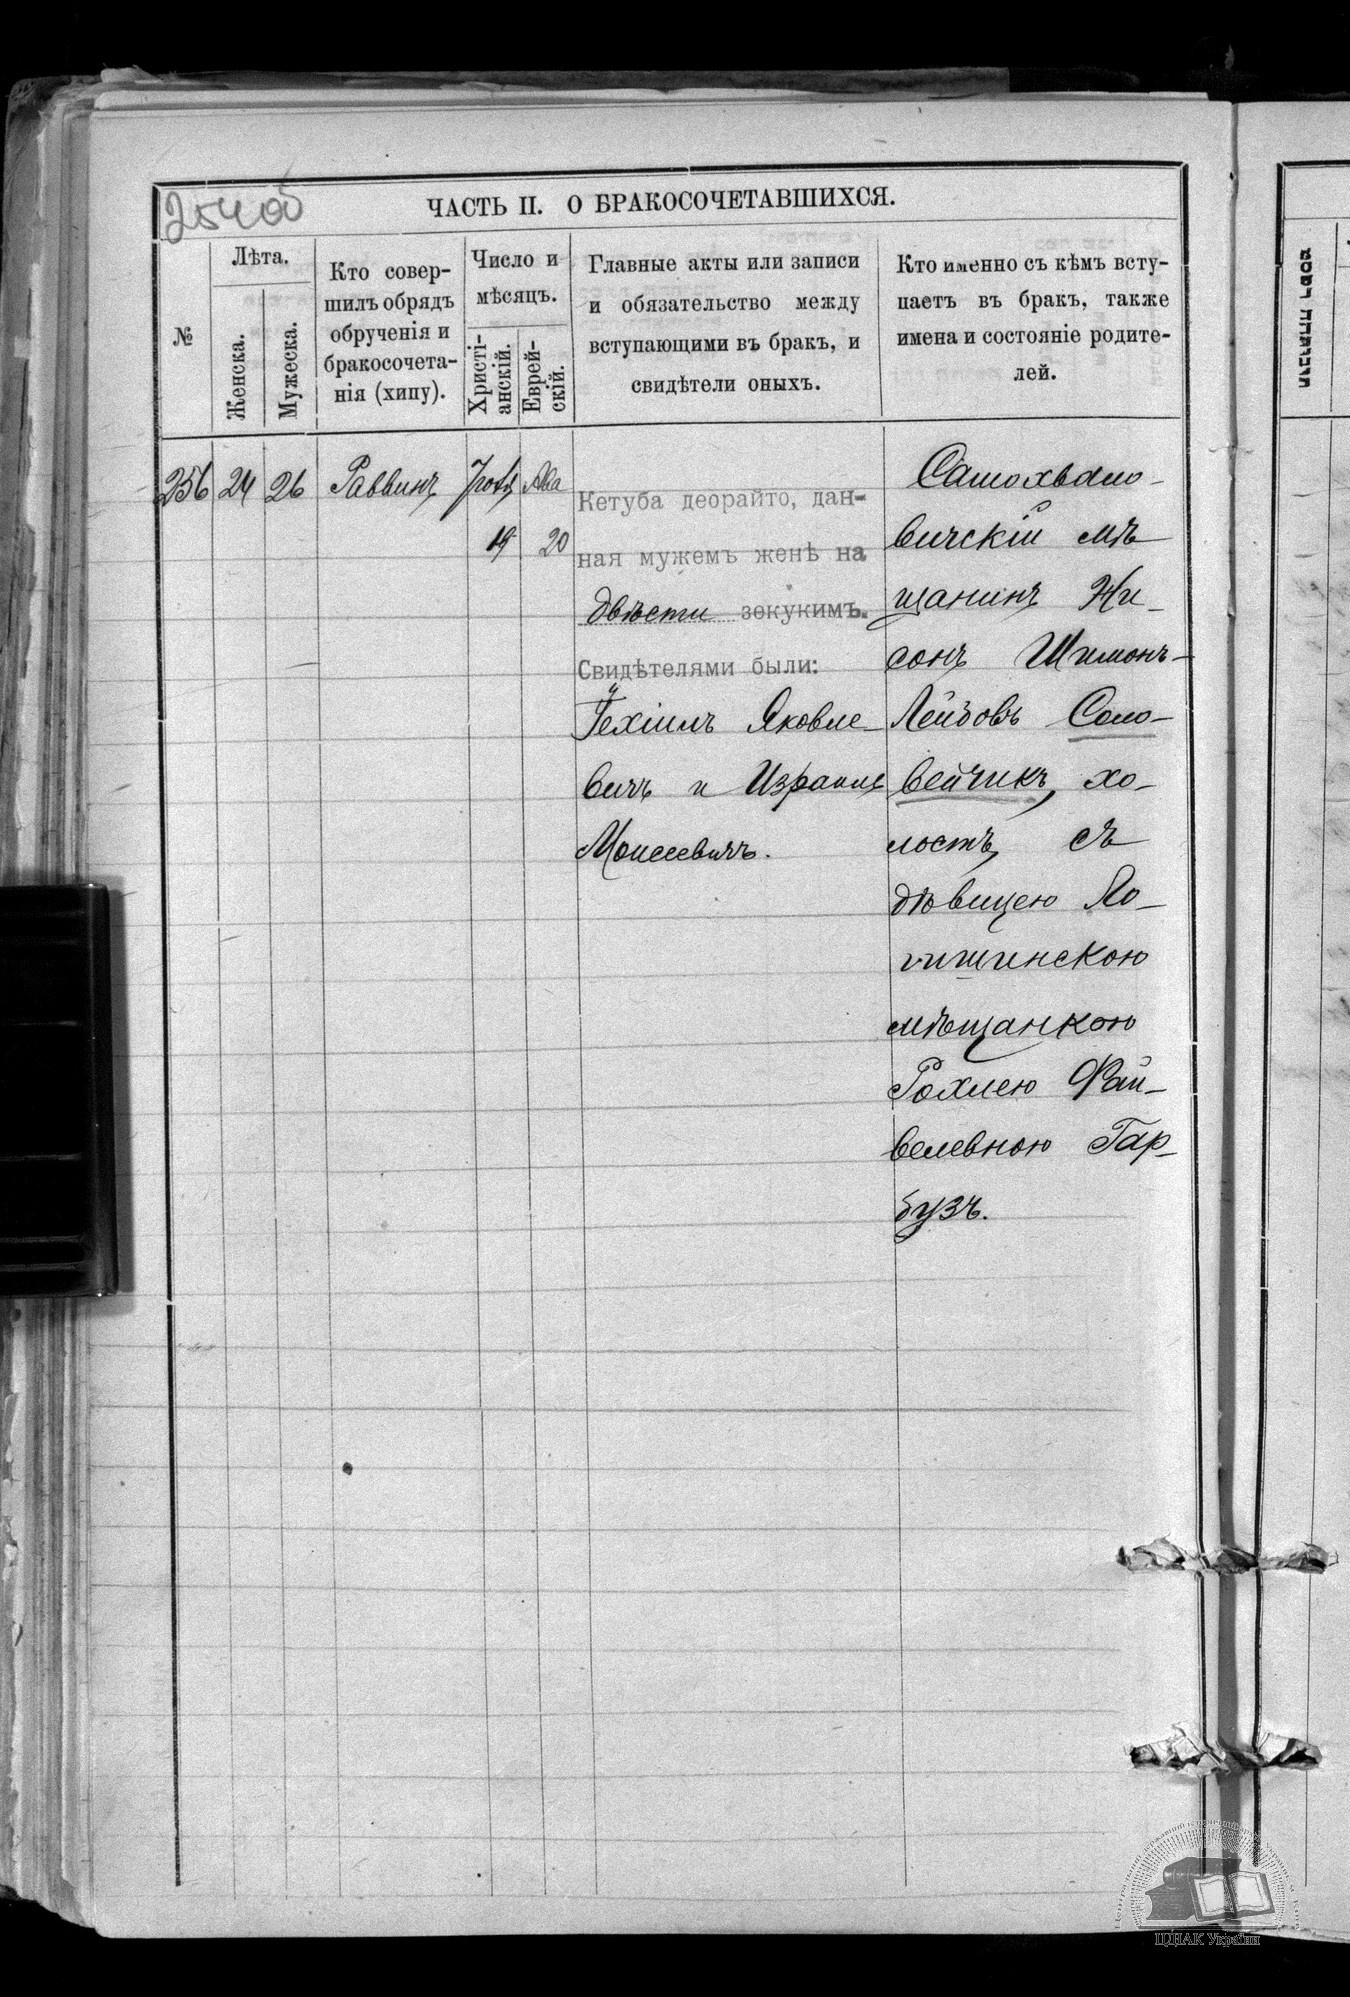 254 об
ЧАСТЬ II. О БРАКОСОЧЕТАВШИХСЯ.
№
Лѣта.
Женска.
Мужеска.
Кто совер-
шилъ обрядъ
обрученія и
бракосочета-
нія (хипу).
Число и
мѣсяцъ.
Христі-
анскій.
Еврей-
скій.
Главные акты или записи
и обязательство между
вступающими въ бракъ, и
свидѣтели оныхъ.
Кто именно съ кѣмъ всту-
паетъ въ бракъ, также
имена и состояніе родите-
лей.
256 24 26 Раввинъ Ава
19 20
Кетуба деорайто, дан-
ная мужемъ женѣ на
двѣсти зекукимъ.
Свидѣтелями были:
Іехіилъ Яковле-
вичъ и Израиль
Моисеевичъ.
Самохвало-
вичскій мѣ-
щанинъ Ни-
сонъ Шимонъ-
Лейбовъ Соло-
вейчикъ, хо-
лостъ, съ
дѣвицею Ло-
гишинскою
мѣщанкою
Рохлею Фай-
велевною Гар-
бузъ.
ЦДІАК України